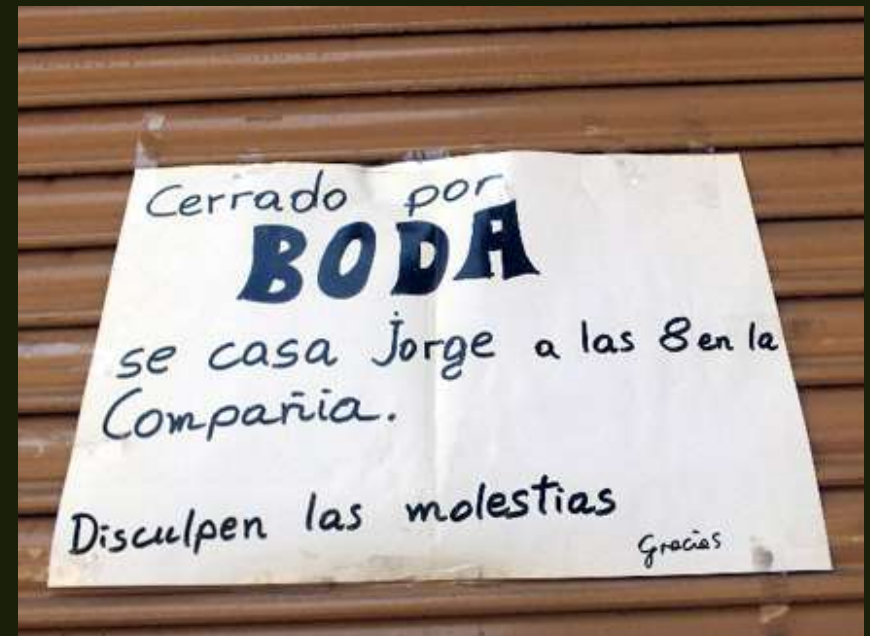 Cerrado por
BODA
se casa Jorge a las 8 en la
Compañia.
Disculpen las molestias
Gracias